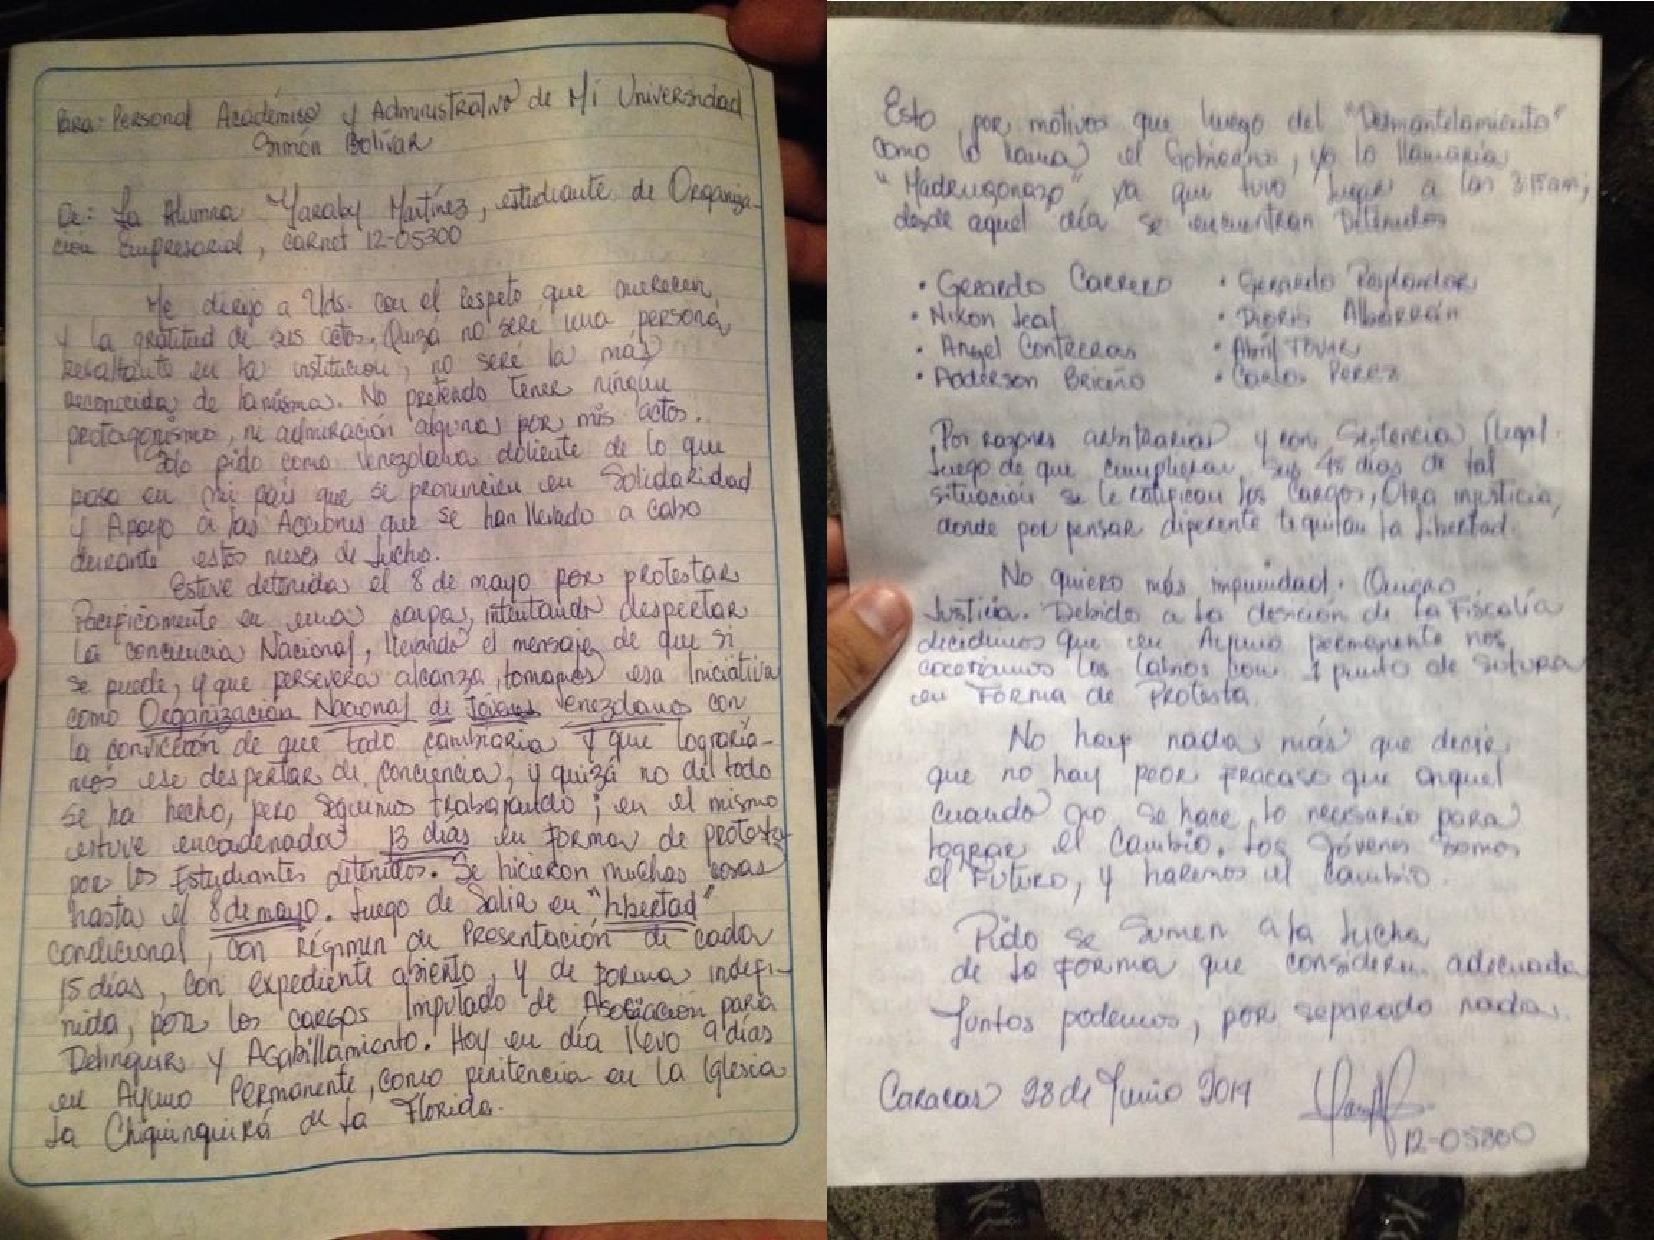 Para: Personal Académico y Administrativo de Mi Universidad
Simón Bolívar
De: La Alumna Yaraby Martínez, estudiante de Organiza-
ción Empresarial, carnet 12-05300
Me dirijo a Uds. con el respeto que merecen,
y la gratitud de sus actos. Quizá no seré una persona
resaltante en la institución, no seré la más
reconocida de la misma. No pretendo tener ningún
protagonismo, ni admiración alguna por mis actos.
Sólo pido como venezolana doliente de lo que
pasa en mi país que se pronuncien en Solidaridad
y Apoyo a las Acciones que se han llevado a cabo
durante estos meses de lucha.
Estuve detenida el 8 de mayo por protestar
Pacíficamente en una carpa, intentando despertar
la conciencia Nacional, llevando el mensaje de que si
se puede, y que persevera alcanza, tomamos esa Iniciativa
como Organización Nacional de Jóvenes Venezolanos con
la convicción de que todo cambiaria y que lograría-
mos ese despertar de conciencia, y quizá no del todo
se ha hecho, pero seguimos trabajando; en el mismo
estuve encadenada 13 días en forma de protesta
por los Estudiantes detenidos. Se hicieron muchas cosas
hasta el 8 de mayo. Luego de Salir en "libertad"
condicional, con Régimen de Presentación de cada
15 días, con expediente abierto, y de forma indefi-
nida, por los cargos Imputado de Asociación para
Delinquir y Agabillamiento. Hoy en día llevo 9 días
en Ayuno Permanente, como penitencia en la Iglesia
La Chiquinquirá de La Florida.
Esto por motivos que luego del "Desmantelamiento"
como lo llama el Gobierno, yo lo llamaría
"Madrugonazo" ya que tuvo lugar a las 3:15am;
desde aquel día se encuentran Detenidos
• Gerardo Carrero • Gerardo Resplandor
• Nixon Leal • Dioris Albarrán
• Angel Contreras • Abril Tovar
• Anderson Briceño • Carlos Perez
Por razones arbitrarias y con Sentencia Ilegal.
Luego de que cumplieran sus 45 días de tal
situación se le ratifican los Cargos, Otra injusticia,
donde por pensar diferente te quitan la Libertad.
No quiero más impunidad. Quiero
Justicia. Debido a la desción de la Fiscalía
decidimos que en Ayuno permanente nos
coceríamos los labios con 1 punto de sutura
en Forma de Protesta.
No hay nada más que decir
que no hay peor fracaso que aquel
cuando no se hace lo necesario para
lograr el Cambio. Los Jóvenes Somos
el Futuro, y haremos el cambio.
Pido se Sumen a la Lucha
de la Forma que consideren adecuada
Juntos podemos, por separado nada.
Caracas 28 de Junio 2014
12-05300